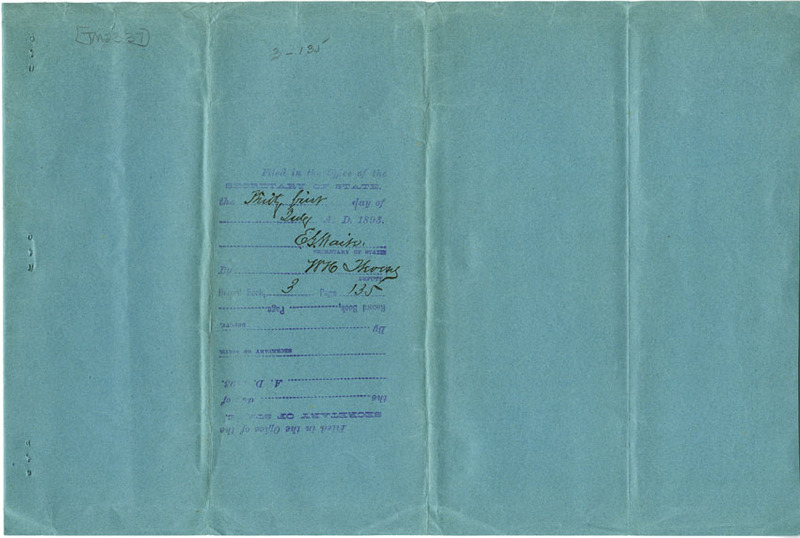 3-135
Filed in the Office of the
SECRETARY OF STATE,
the Thirty first day of
July A. D. 1893.
SECRETARY OF STATE
By W H
DEPUTY
Record Book, 3 Page 135
Filed in the Office of the
SECRETARY OF STATE,
the day of
A. D. 93.
SECRETARY OF STATE
By DEPUTY.
Record Book, Page